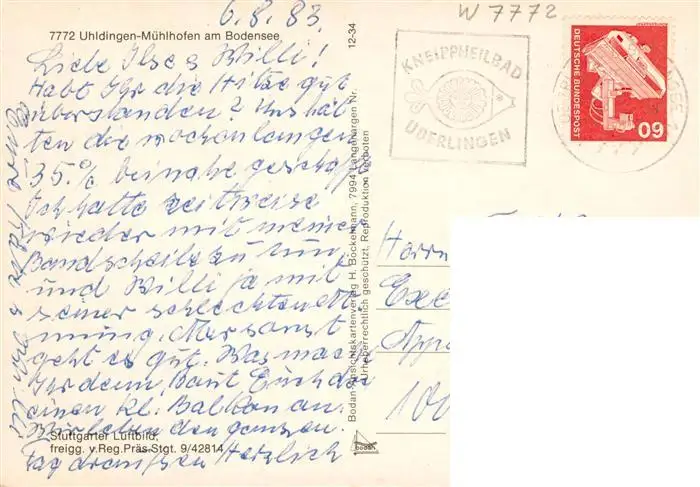 6.8.83.
W 7772
7772 Uhldingen-Mühlhofen am Bodensee
12-34
Liebe Ilse & Willi!
Habt Ihr die Hitze gut
überstanden? Uns hät
ten die wochenlangen
35.% beinahe geschafft,
Ich hatte zeitweise
wieder mit meiner
Bandscheibe zu tun,
und Willi ja mit
seiner schlechten At
mung. Aber sonst
geht es gut. Was macht
Ihr denn, baut Euch doch
einen kl. Balkon an.
Wir leben den ganzen
Tag draußen Herzlich
Eure
Stuttgarter Luftbild,
freigg. v.Reg.Präs.Stgt. 9/42814
Bodan-Ansichtskartenverlag H. Bockelmann, 7994 Langenargen Nr.
Urheberrechtlich geschützt, Reproduktion verboten
bodan
KNEIPPHEILBAD
ÜBERLINGEN
DEUTSCHE BUNDESPOST
60
Herrn
100